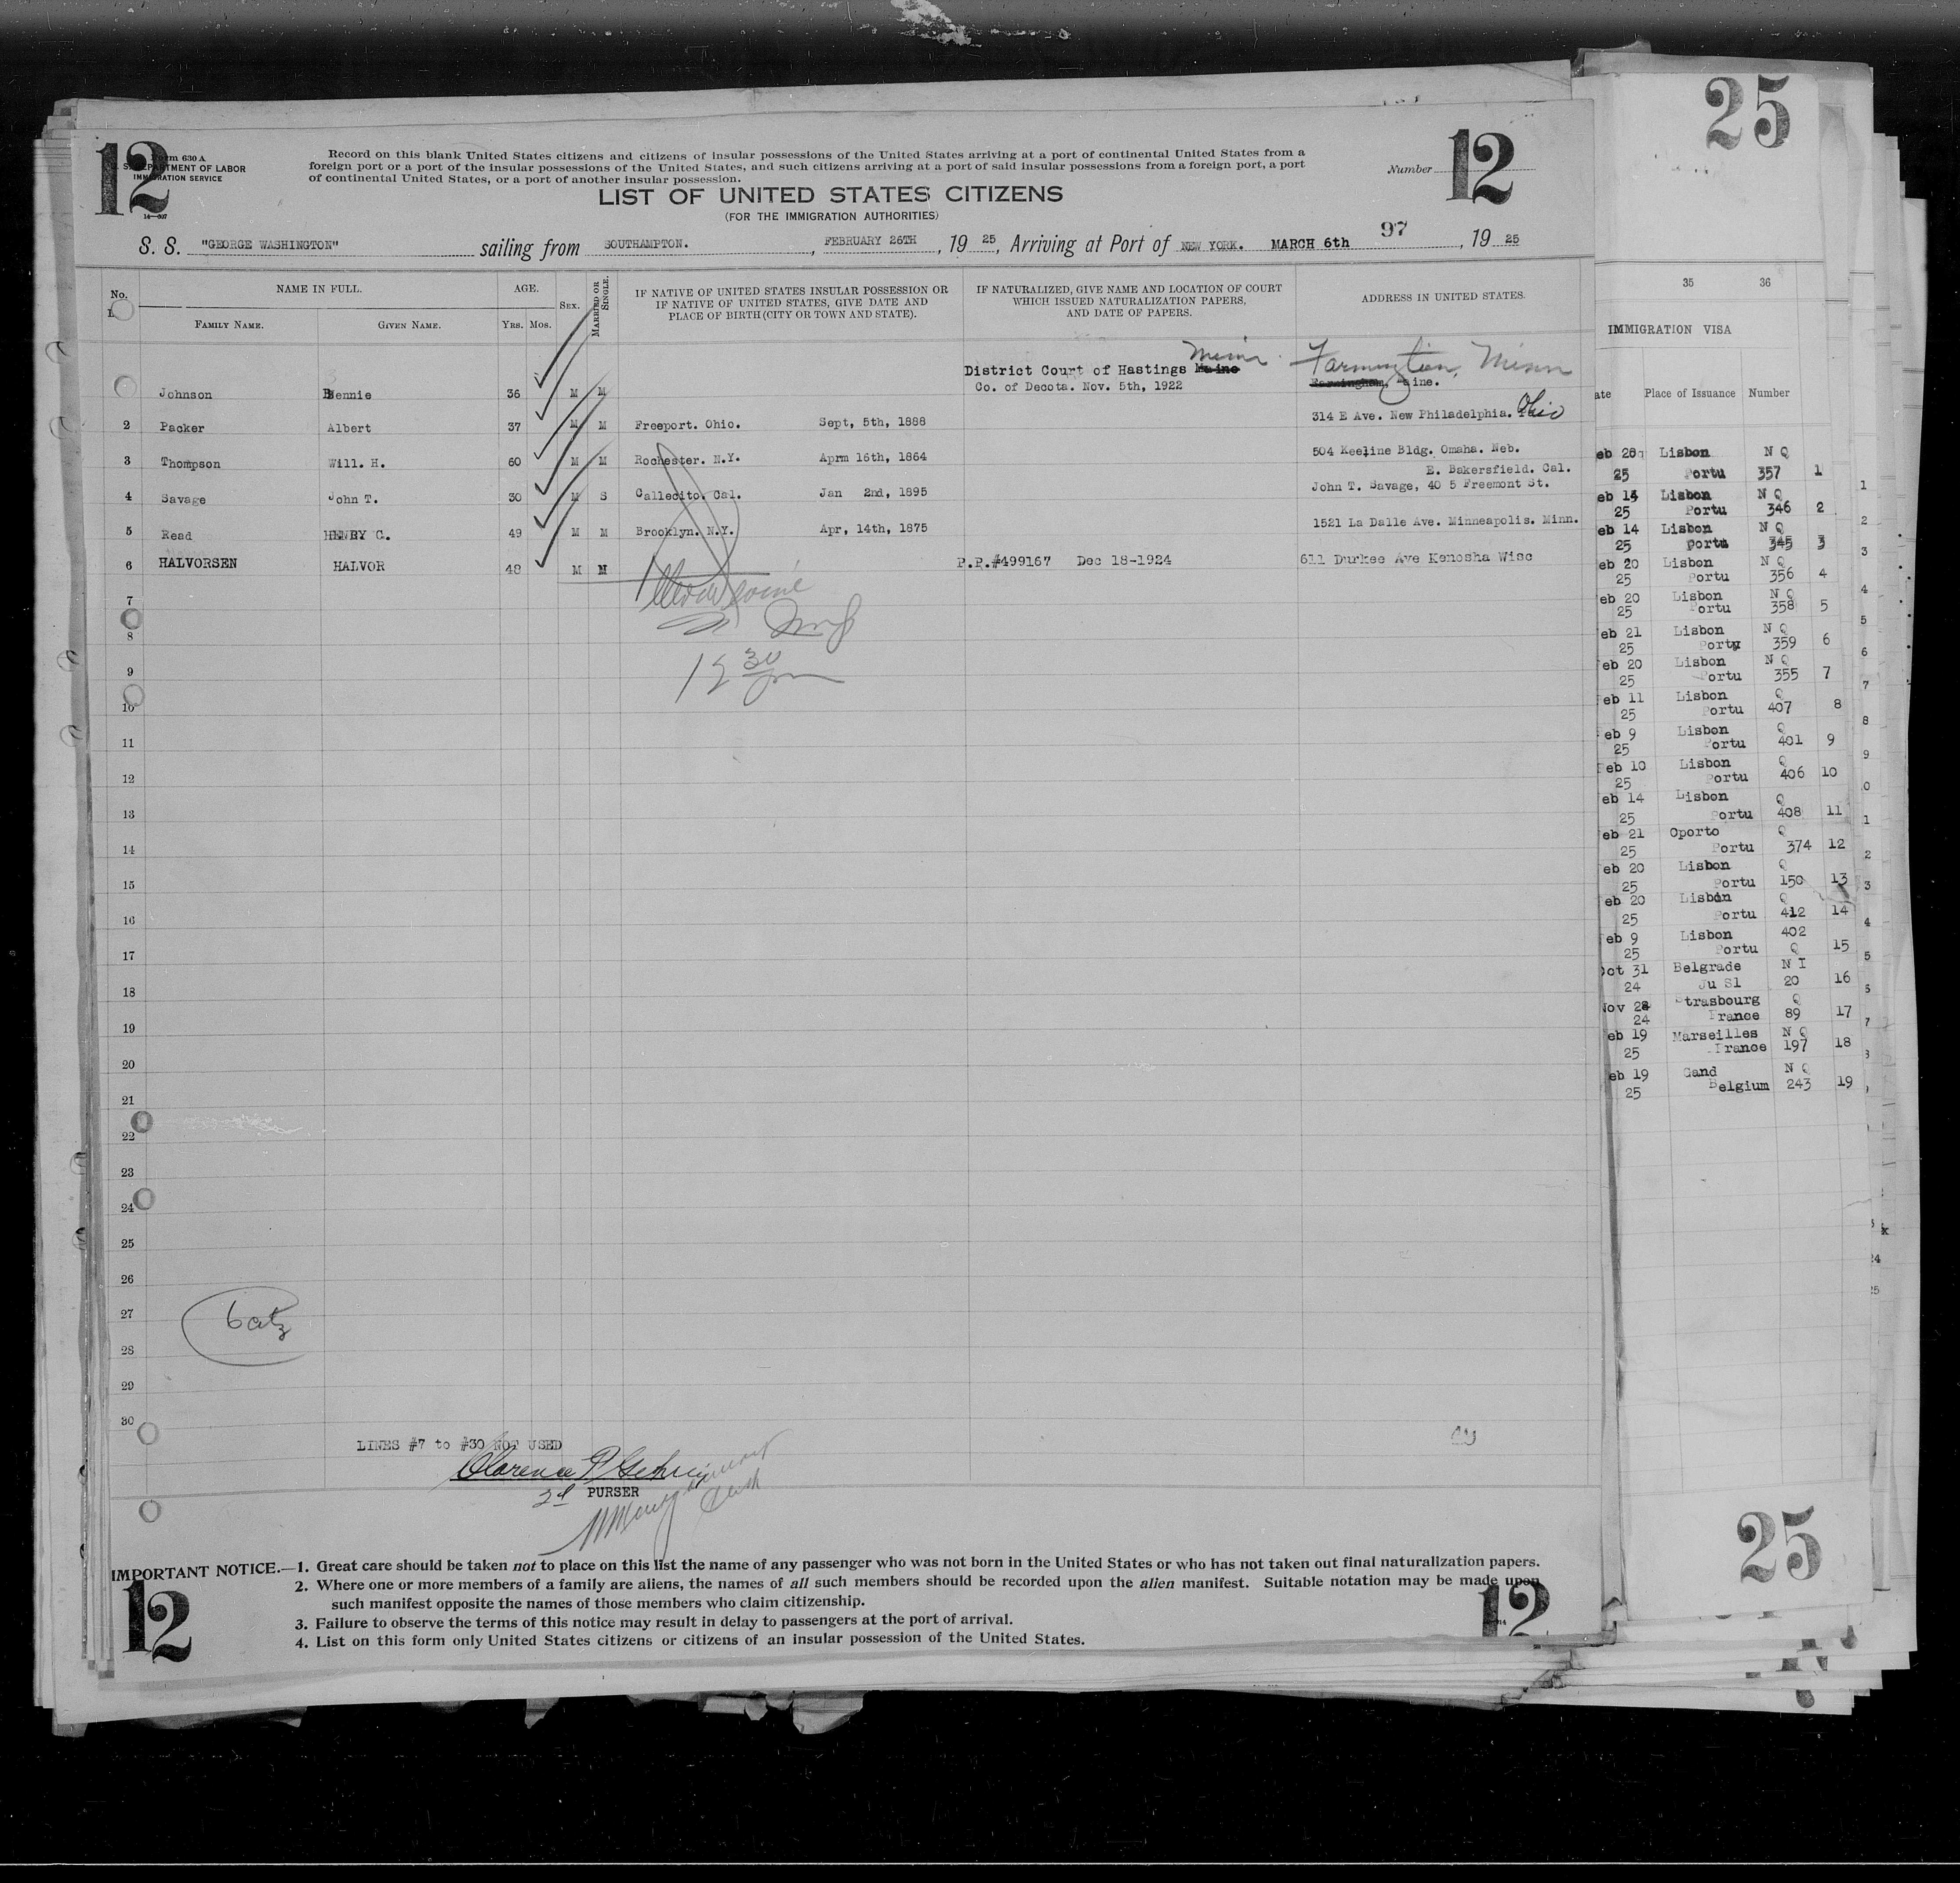 25
12
12
Form 630 A
U. S. DEPARTMENT OF LABOR
IMMIGRATION SERVICE
14—507
Record on this blank United States citizens and citizens of insular possessions of the United States arriving at a port of continental United States from a
foreign port or a port of the insular possessions of the United States, and such citizens arriving at a port of said insular possessions from a foreign port, a port
of continental United States, or a port of another insular possession.
Number
LIST OF UNITED STATES CITIZENS
(FOR THE IMMIGRATION AUTHORITIES)
97
S. S. "GEORGE WASHINGTON" sailing from SOUTHAMPTON. , FEBRUARY 26TH , 19 25, Arriving at Port of NEW YORK. MARCH 6th , 19 25
No. NAME IN FULL. AGE. SEX. MARRIED OR SINGLE. IF NATIVE OF UNITED STATES INSULAR POSSESSION OR IF NATIVE OF UNITED STATES, GIVE DATE AND PLACE OF BIRTH (CITY OR TOWN AND STATE). IF NATURALIZED, GIVE NAME AND LOCATION OF COURT WHICH ISSUED NATURALIZATION PAPERS, AND DATE OF PAPERS. ADDRESS IN UNITED STATES.
FAMILY NAME. GIVEN NAME. YRS. MOS.
Minn. Farmington, Minn
District Court of Hastings Maine
Johnson Bennie 36 M M Co. of Decota. Nov. 5th, 1922 Farmingham, Maine.
2 Packer Albert 37 M M Freeport. Ohio. Sept, 5th, 1888 314 E Ave. New Philadelphia. Ohio
3 Thompson Will. H. 60 M M Rochester. N.Y. Aprm 16th, 1864 504 Keeline Bldg. Omaha. Neb.
E. Bakersfield. Cal.
4 Savage John T. 30 M S Callecito. Cal. Jan 2nd, 1895 John T. Savage, 40 5 Freemont St.
5 Read HENRY C. 49 M M Brooklyn. N.Y. Apr, 14th, 1875 1521 La Dalle Ave. Minneapolis. Minn.
6 HALVORSEN HALVOR 48 M M P.P.#499167 Dec 18-1924 611 Durkee Ave Kenosha Wisc
7
8
9
12 30 pm
10
11
12
13
14
15
16
17
18
19
20
21
22
23
24
25
26
27
28
29
30
LINES #7 to #30 NOT USED
Clarence P
2d PURSER
IMPORTANT NOTICE.—1. Great care should be taken not to place on this list the name of any passenger who was not born in the United States or who has not taken out final naturalization papers.
2. Where one or more members of a family are aliens, the names of all such members should be recorded upon the alien manifest. Suitable notation may be made upon
such manifest opposite the names of those members who claim citizenship.
3. Failure to observe the terms of this notice may result in delay to passengers at the port of arrival.
4. List on this form only United States citizens or citizens of an insular possession of the United States.
12
12
35 36
IMMIGRATION VISA
ate Place of Issuance Number
eb 28 Lisbon N Q
25 Portu 357 1
eb 14 Lisbon N Q
25 Portu 346 2
eb 14 Lisbon N Q
25 Portu 345 3
eb 20 Lisbon N Q
25 Portu 356 4
eb 20 Lisbon N Q
25 Portu 358 5
eb 21 Lisbon N Q
25 Porty 359 6
eb 20 Lisbon N Q
25 Portu 355 7
eb 11 Lisbon Q
25 Portu 407 8
eb 9 Lisbon Q
25 Portu 401 9
eb 10 Lisbon Q
25 Portu 406 10
eb 14 Lisbon Q
25 Portu 408 11
eb 21 Oporto Q
25 Portu 374 12
eb 20 Lisbon Q
25 Portu 150 13
eb 20 Lisbon Q
25 Portu 412 14
eb 9 Lisbon 402
25 Portu Q 15
Oct 31 Belgrade N I
24 Ju Sl 20 16
Nov 28 Strasbourg Q
24 France 89 17
eb 19 Marseilles N Q
25 France 197 18
eb 19 Gand N Q
25 Belgium 243 19
25